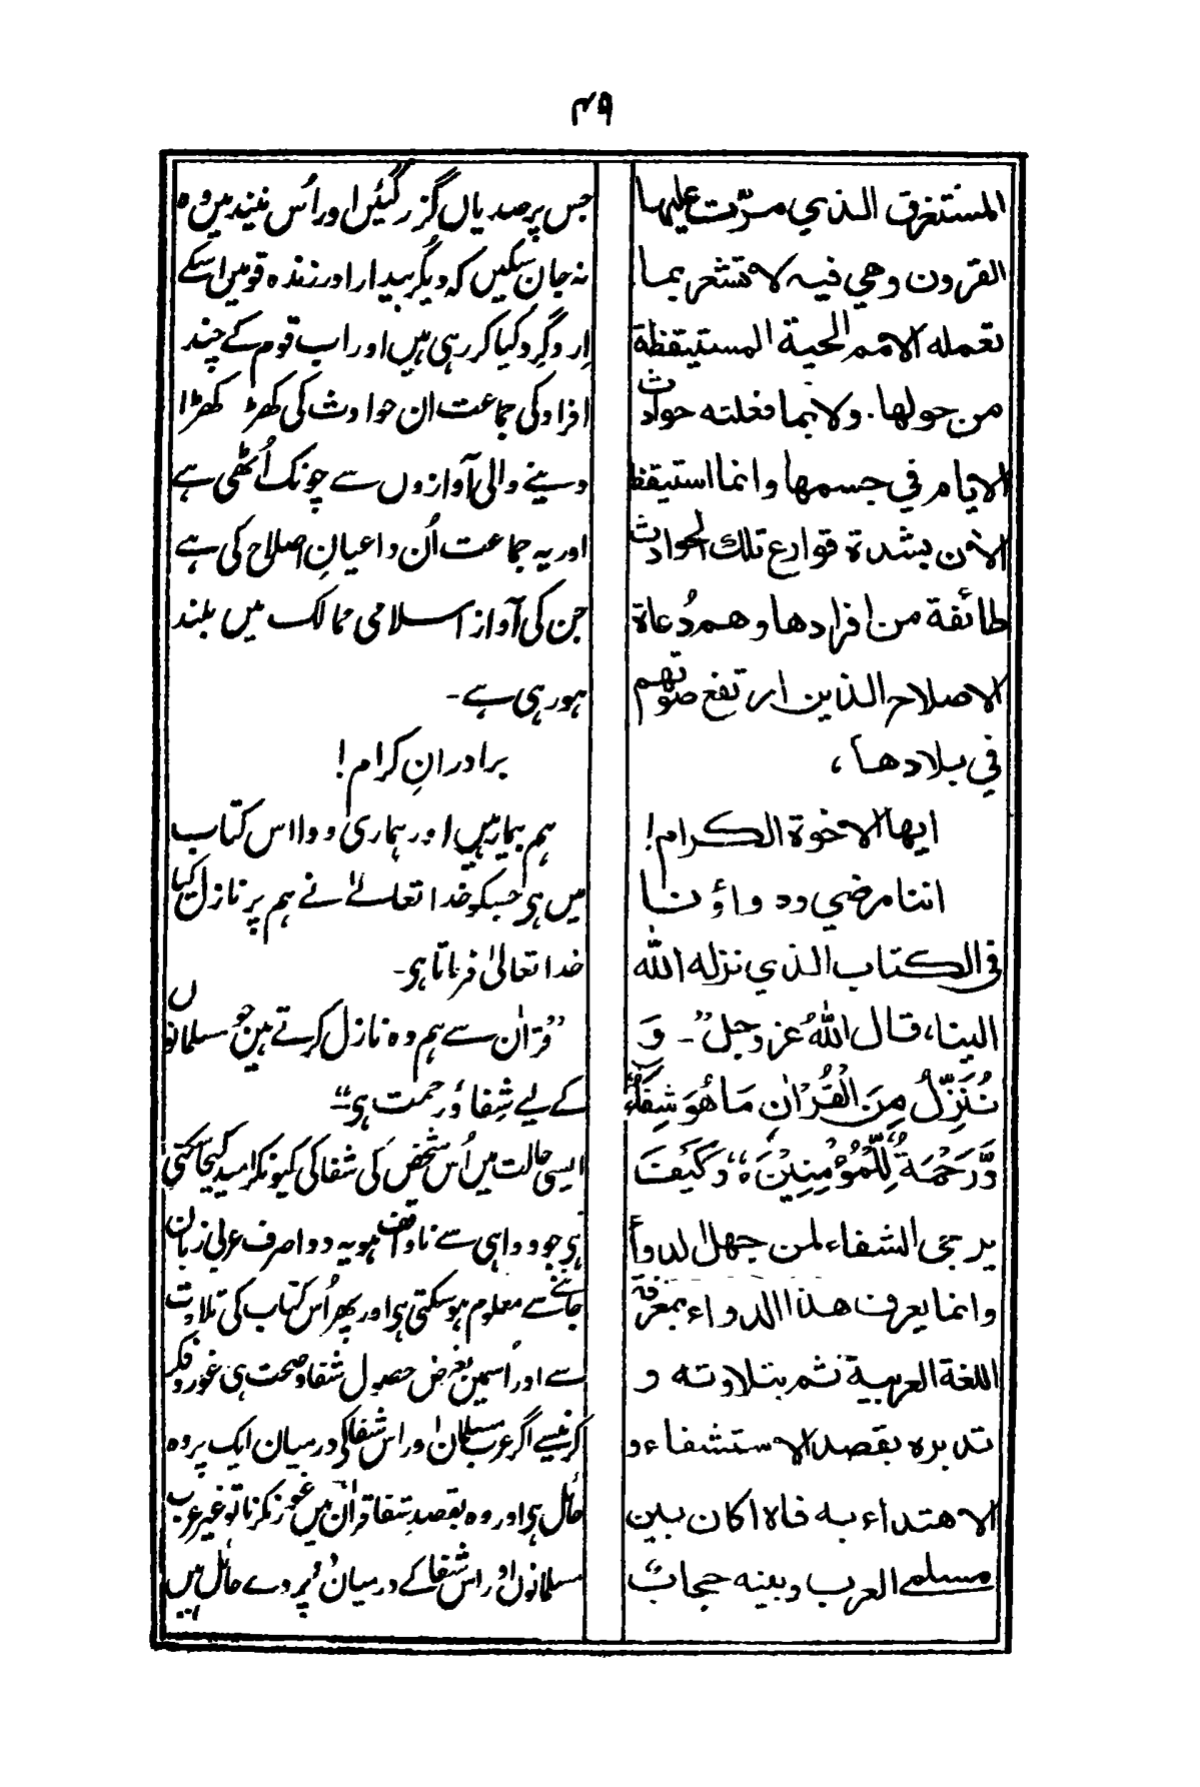 ۴۹
المستغرق الذي مرّت عليها
القرون وهي فيه لا تشعر بما
تعمله الامم الحية المستيقظة
من حولها. ولا بما فعلته حوادث
الايام في جسمها وانما استيقظ
الآن بشدة قوارع تلك الحوادث
طائفة من افرادها وهم دُعاة
الاصلاح الذين ارتفع صوتهم
في بلادها،
ايها الاخوة الكرام!
اننا مرضي ودواؤنا
في الكتاب الذي نزله الله
الينا، قال اللهُ عز وجل"۔ وَ
نُنَزِّلُ مِنَ الْقُرْاٰنِ مَا هُوَ شِفَآءٌ
وَّرَحْمَةٌ لِّلْمُؤْمِنِيْنَ ۝،، وكيف
يرتجى الشفاء لمن جهل الدوأ
وانما يعرف هذا الدواء بمعرفة
اللغة العربية ثم بتلاوته و
تدبره بقصد الاستشفاء و
الاهتداء به فاذا كان بين
مسلمي العرب وبينه حجابٌ
جس پر صدیاں گزر گئیں اور اُس نیند میں وہ
نہ جان سکیں کہ دیگر بیدار اور زندہ قومیں اسکے
اِرد گرد کیا کر رہی ہیں اور اب قوم کے چند
افراد کی جماعت ان حوادث کی کھڑ کھڑا
دینے والی آوازوں سے چونک اُٹھی ہے
اور یہ جماعت اُن داعیانِ اصلاح کی ہے
جن کی آواز اسلامی ممالک میں بلند
ہو رہی ہے۔
برادرانِ کرام!
ہم بیمار ہیں اور ہماری دوا اس کتاب
میں ہی جسکو خدا تعالےٰ نے ہم پر نازل کیا
خدا تعالیٰ فرماتا ہی۔
"قرآن سے ہم وہ نازل کرتے ہیں جو مسلمانوں
کے لیے شِفا وَرحمت ہی"
ایسی حالت میں اُس شخص کی شفا کی کیونکر امید کیجاسکتی
ہی جو دوا ہی سے ناواقف ہو یہ دوا صرف عربی زبان
جاننے سے معلوم ہو سکتی ہی اور پھر اُس کتاب کی تلاوت
سے اور اُسمیں بغرض حصول شفا و صحت ہی غور و فکر
کرنیسے اگر عرب مسلمان اور اس شفا کی درمیان ایک پردہ
حائل ہی اور وہ بقصدِ شفا قرآن میں غور نکرنا تو غیر عرب
مسلمانوں اور اس شفا کے درمیان دُو پردے حائل ہیں